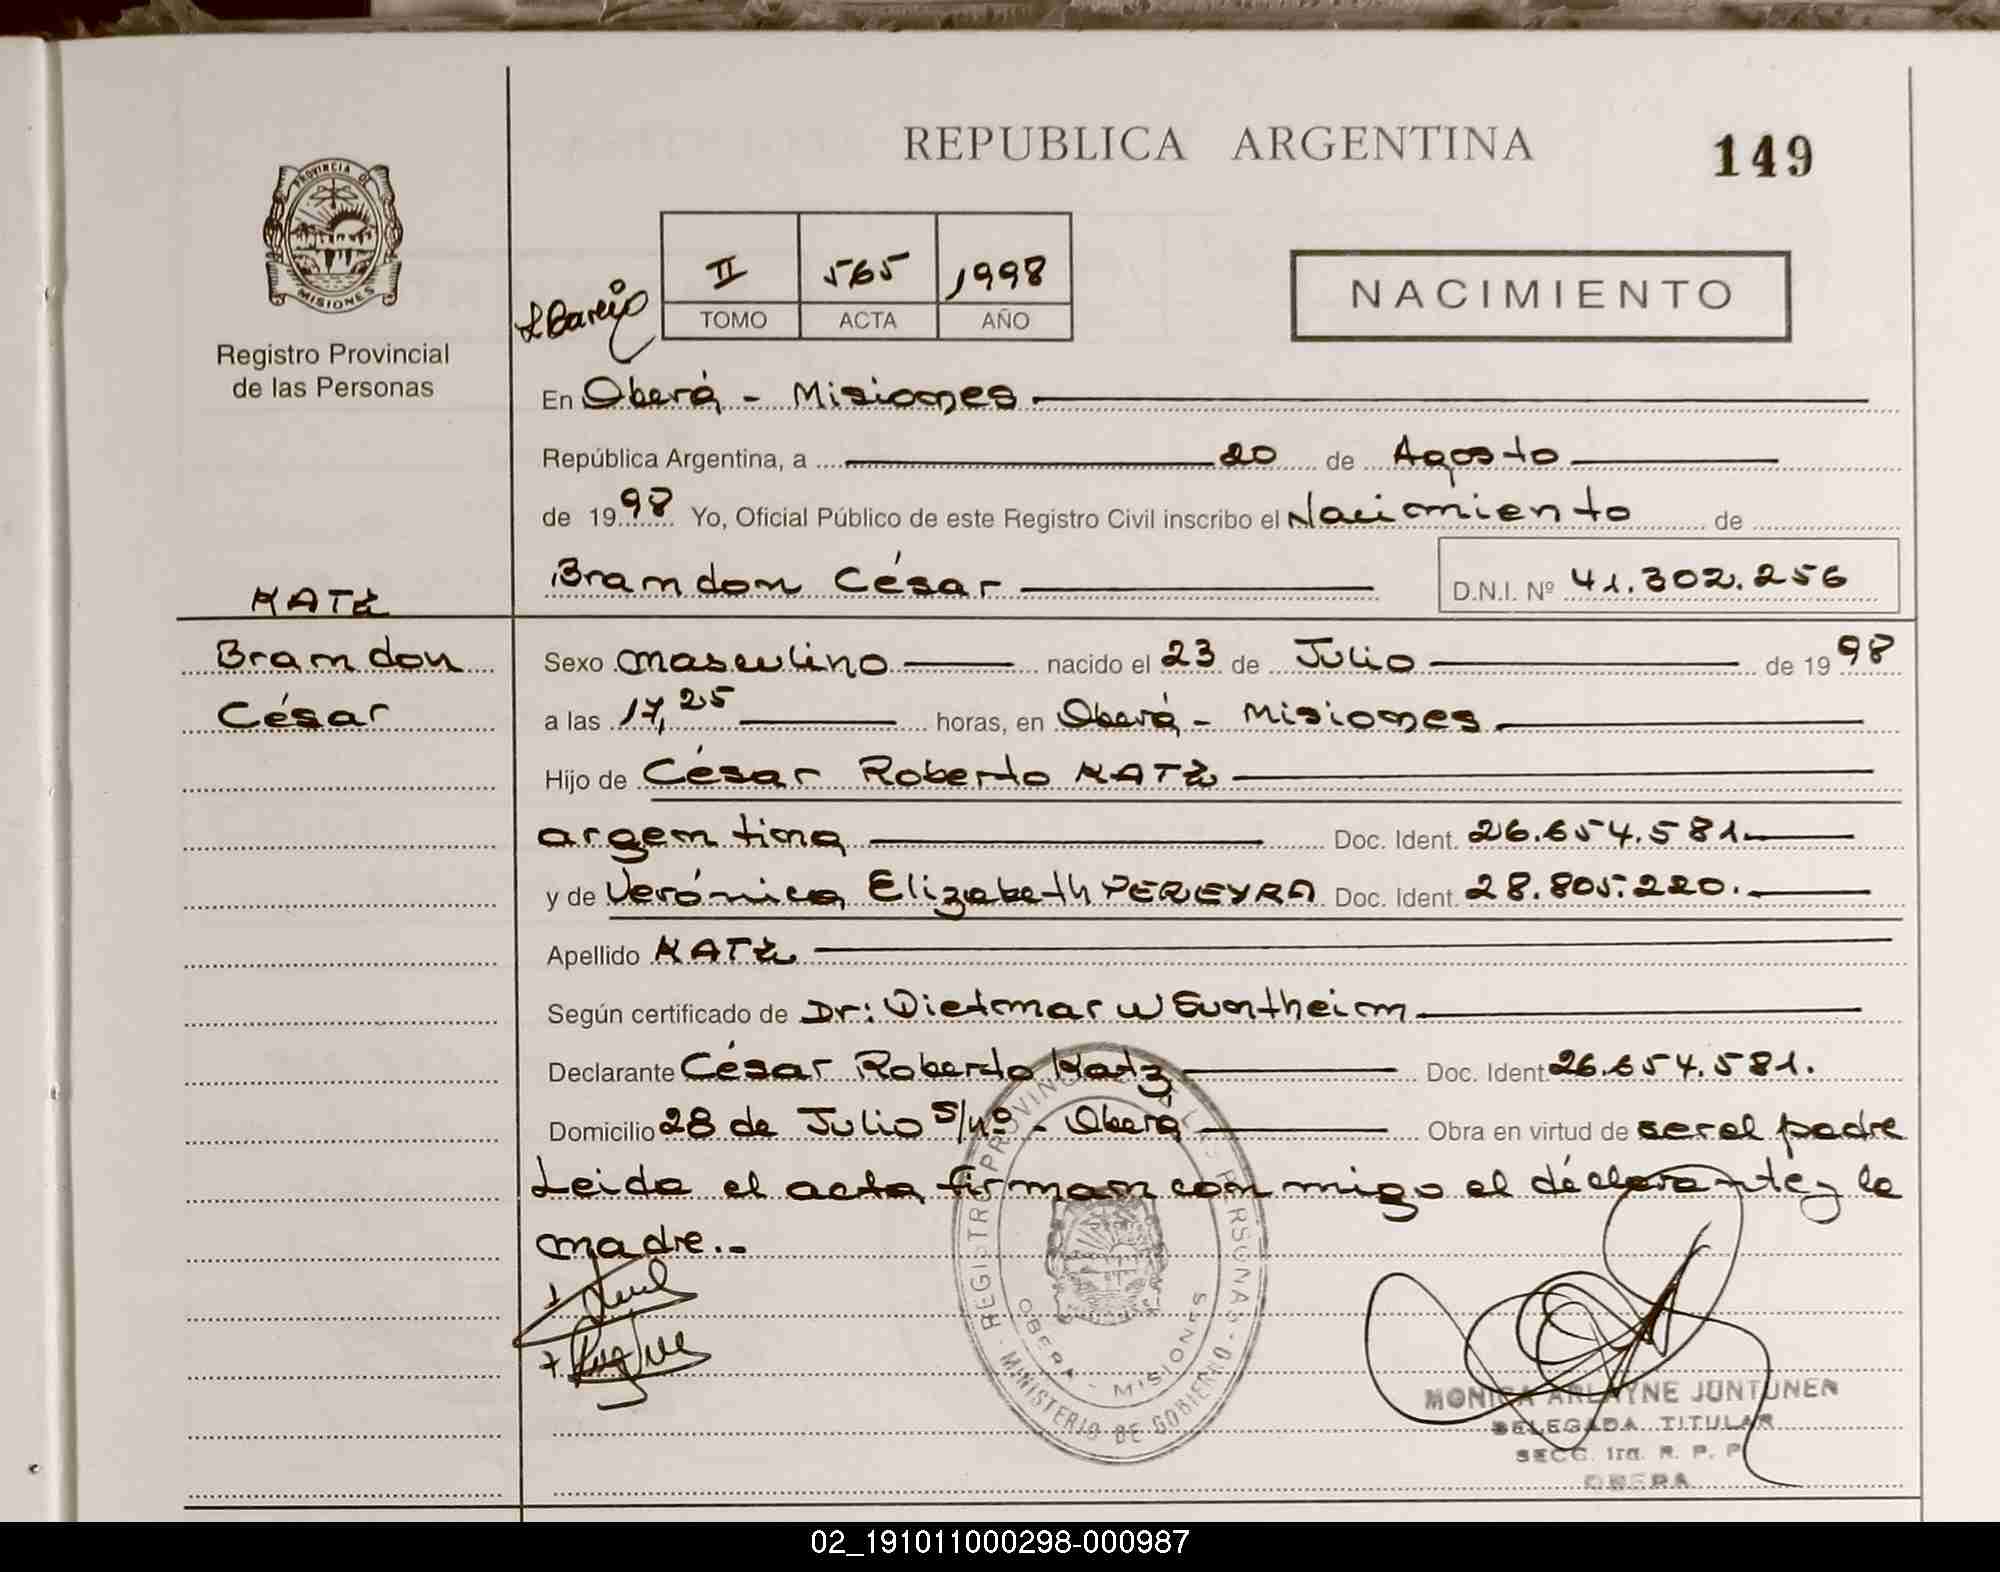 REPUBLICA ARGENTINA
149
PROVINCIA DE
MISIONES
Registro Provincial
de las Personas
II 565 1998
TOMO ACTA AÑO
NACIMIENTO
En Oberá - Misiones
República Argentina, a 20 de Agosto
de 1998 Yo, Oficial Público de este Registro Civil inscribo el Nacimiento de
Brandon César D.N.I. Nº 41.302.256
KATZ
Brandon
César
Sexo masculino nacido el 23 de Julio de 1998
a las 17,25 horas, en Oberá - Misiones
Hijo de César Roberto KATZ
argentina Doc. Ident. 26.654.581
y de Verónica Elizabeth PEREYRA Doc. Ident. 28.805.220.
Apellido KATZ
Según certificado de Dr: Dietmar W Suntheim
Declarante César Roberto Katz Doc. Ident. 26.654.581.
Domicilio 28 de Julio S/Nº - Oberá Obra en virtud de ser el padre
Leida el acta firman conmigo el declarante y la
madre.-
REGISTRO PROVINCIAL DE LAS PERSONAS
MINISTERIO DE GOBIERNO
OBERA - MISIONES
MONICA ARLAYNE JUNTUNEN
DELEGADA TITULAR
SECC. 1ra. R. P. P.
OBERA
02_191011000298-000987